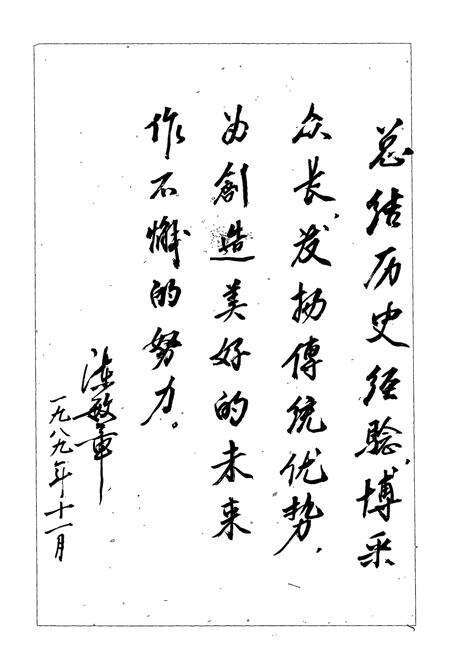 总结历史经验,博采
众长,发扬傳统优势,
为創造美好的未来
作不懈的努力。
陈敏章
一九八九年十一月